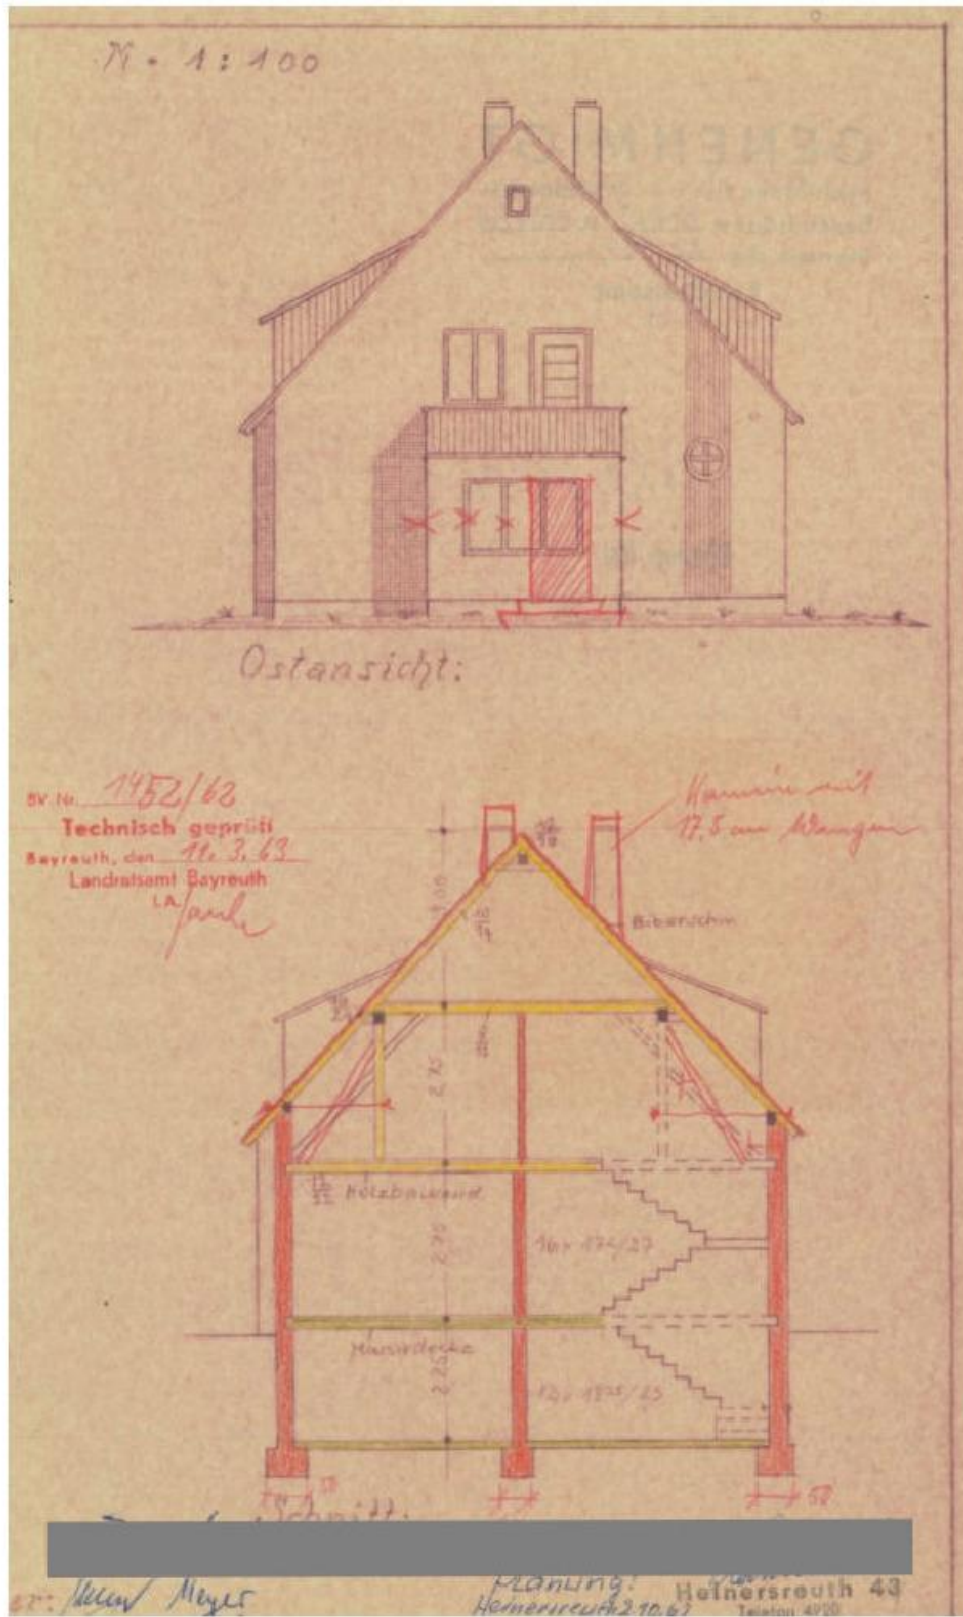 M. 1:100
Ostansicht:
BV. Nr. 1452/62
Technisch geprüft
Bayreuth, den 11. 3. 63
Landratsamt Bayreuth
I.A.
Kamine mit
17,5 cm Wangen
Biberschw.
3.00
2.75
Holzbalkend
2.75
16 x 17⁴/27
Massivdecke
2.25
12 x 18²⁵/25
50
50
Schnitt:
Meyer
Planung:
Heinersreuth 2.10.62
Heinersreuth 43
Telefon 4920